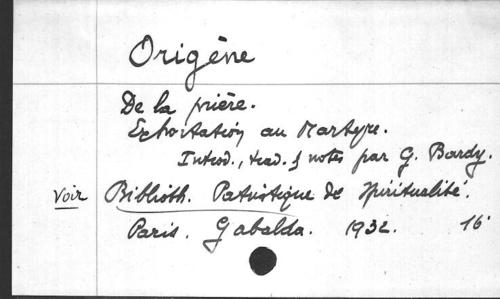 Origène
De la prière.
Exhortation au Martyre.
Introd., trad. & notes par G. Bardy.
voir Biblioth. Patristique de Spiritualité.
Paris. Gabalda. 1932. 16°